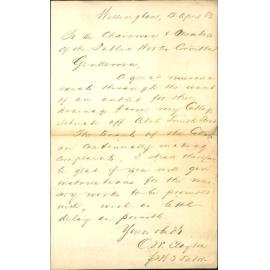 Wellington, 12 April 83
To the Chairman & Members
of the Public Works Committee
Gentlemen,
A great nuisance
exists through the want
of an outlet for the
drainage from my Cottage
situate off Abel Smith Street
The tenants of the Cottage
are continually making
complaints, I shall therefore
be glad if you will give
instructions for the
works to be proceeded
with, with as little
delay as possible
Yours